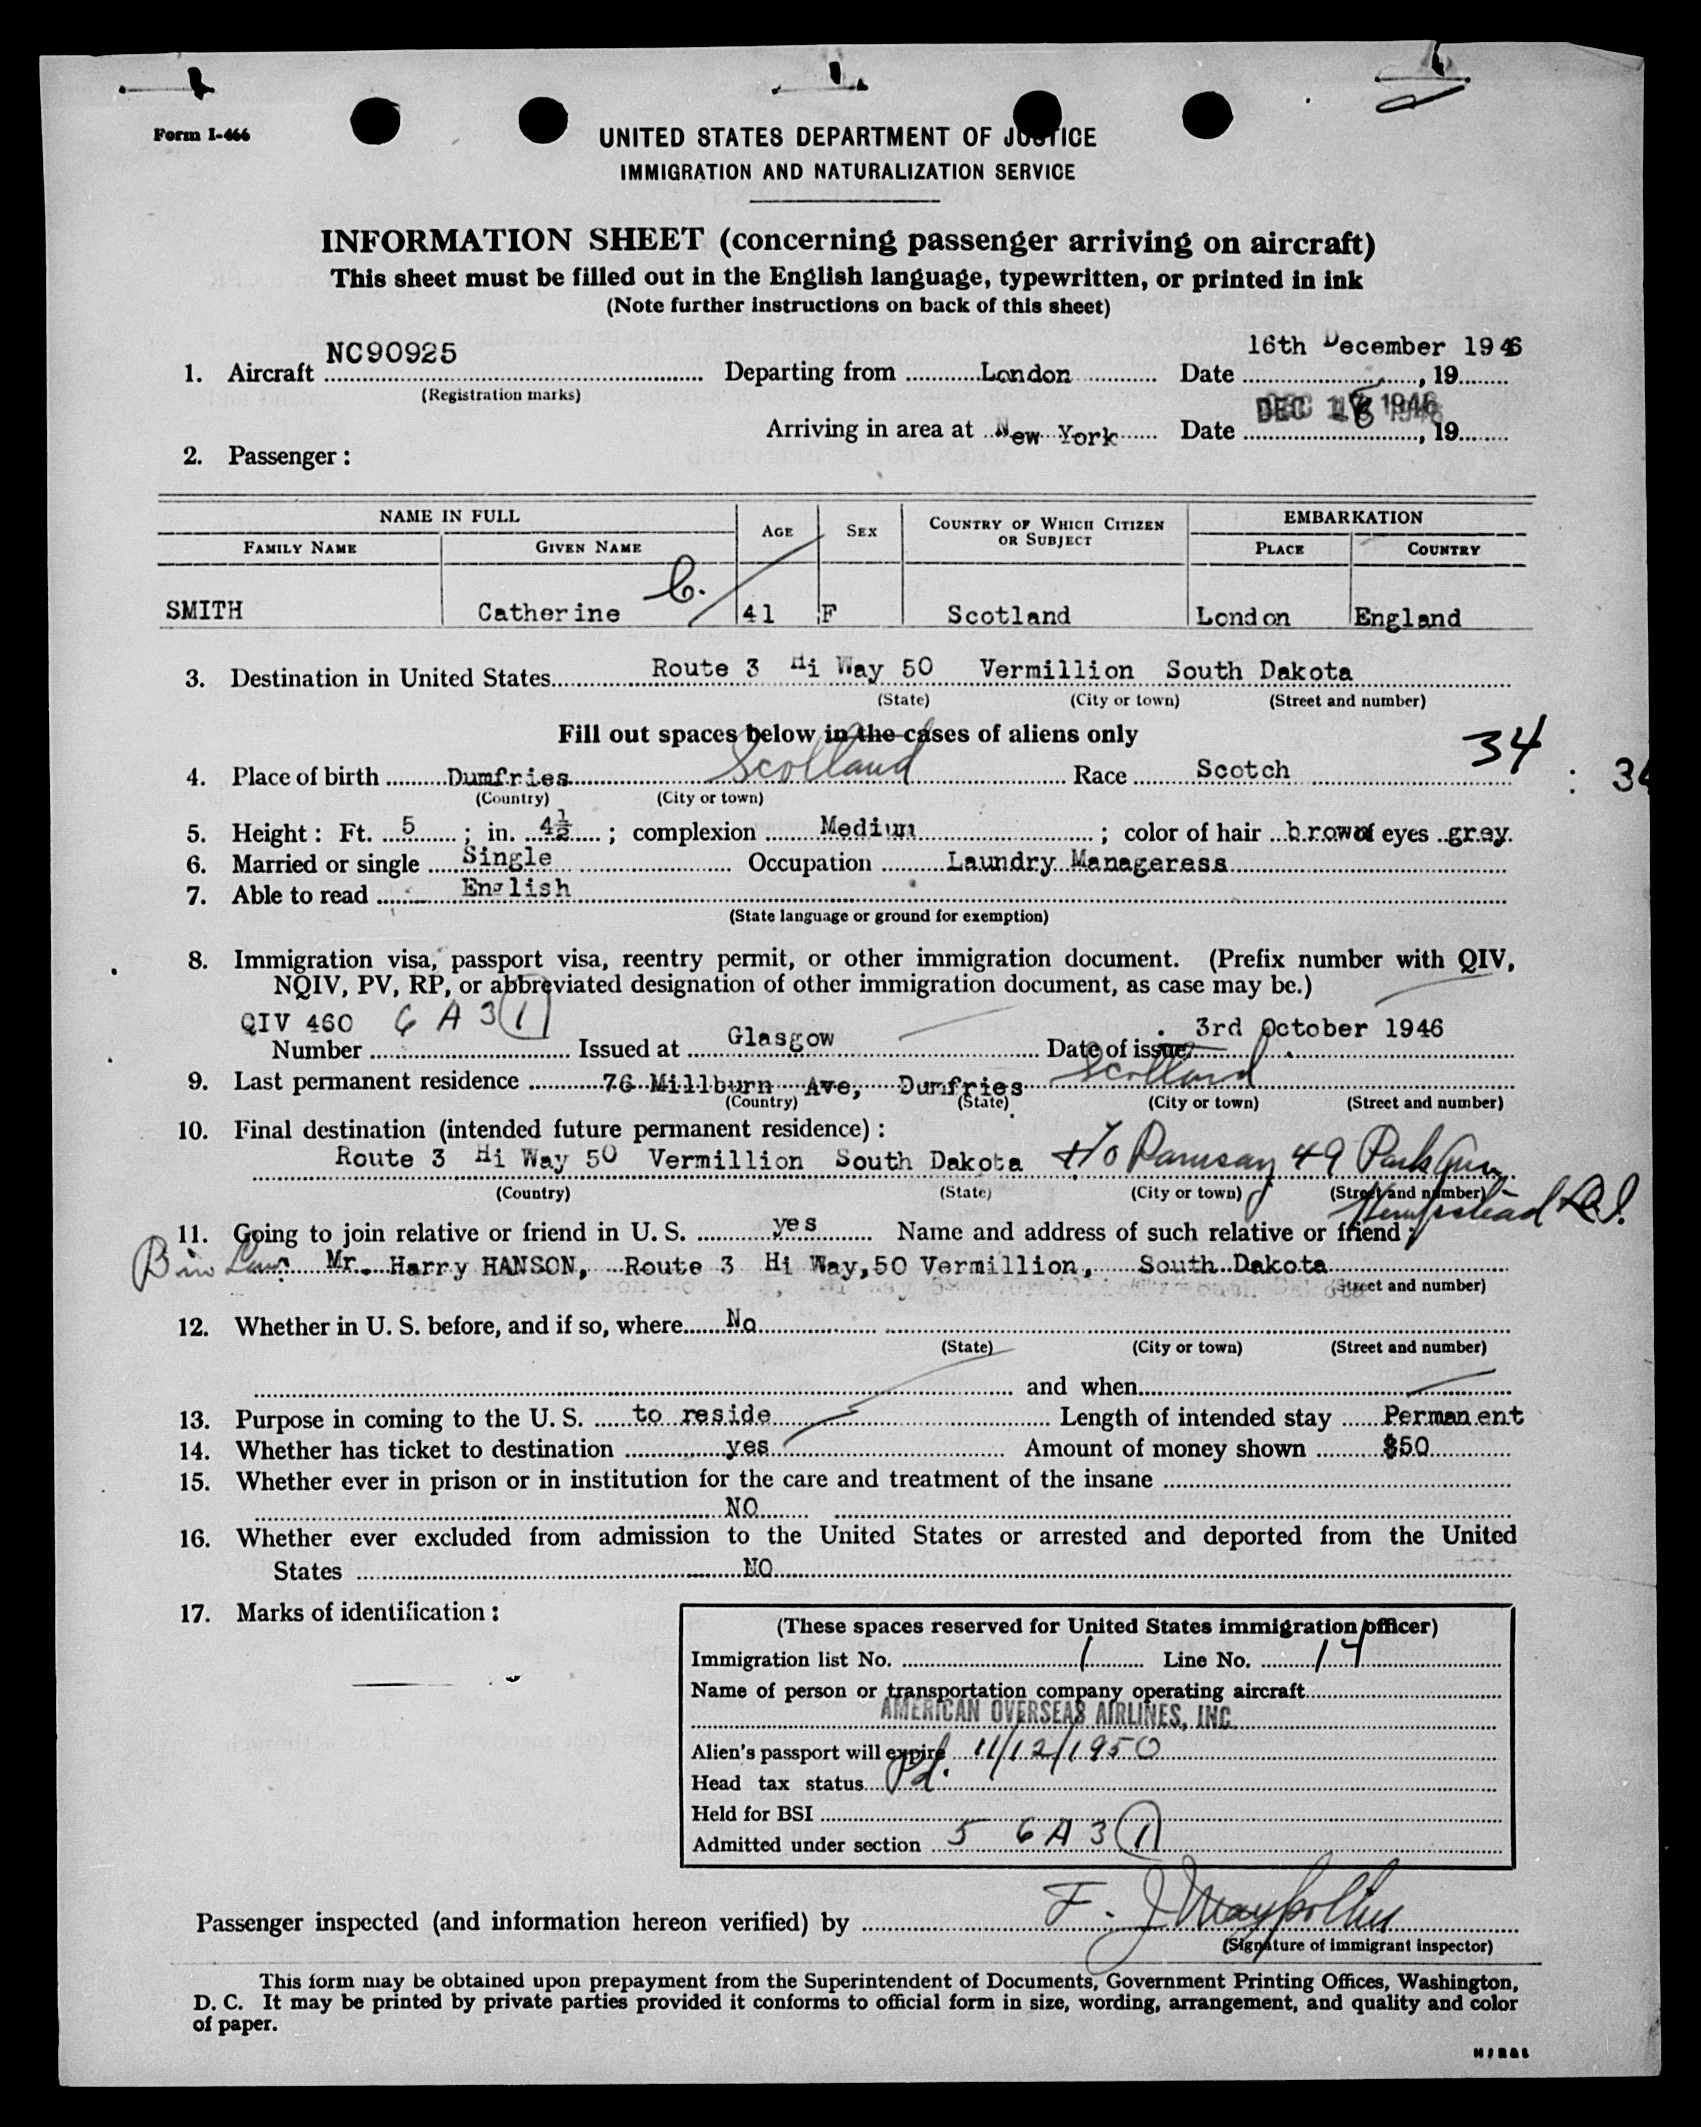 Form I-466
UNITED STATES DEPARTMENT OF JUSTICE
IMMIGRATION AND NATURALIZATION SERVICE
INFORMATION SHEET (concerning passenger arriving on aircraft)
This sheet must be filled out in the English language, typewritten, or printed in ink
(Note further instructions on back of this sheet)
1. Aircraft NC90925 Departing from London Date 16th December 1946, 19
(Registration marks)
Arriving in area at New York Date DEC 1946, 19
2. Passenger:
NAME IN FULL AGE SEX COUNTRY OF WHICH CITIZEN OR SUBJECT EMBARKATION
FAMILY NAME GIVEN NAME PLACE COUNTRY
SMITH Catherine C. 41 F Scotland London England
3. Destination in United States Route 3 Hi Way 50 Vermillion South Dakota
(State) (City or town) (Street and number)
Fill out spaces below in the cases of aliens only
34
: 34
4. Place of birth Dumfries Scotland Race Scotch
(Country) (City or town)
5. Height: Ft. 5; in. 4½; complexion Medium; color of hair brown of eyes grey.
6. Married or single Single Occupation Laundry Manageress
7. Able to read English
(State language or ground for exemption)
8. Immigration visa, passport visa, reentry permit, or other immigration document. (Prefix number with QIV,
NQIV, PV, RP, or abbreviated designation of other immigration document, as case may be.)
QIV 460 6 A 3 (1)
Number Issued at Glasgow Date of issue 3rd October 1946
9. Last permanent residence 76 Millburn Ave, Dumfries Scotland
(Country) (State) (City or town) (Street and number)
10. Final destination (intended future permanent residence):
Route 3 Hi Way 50 Vermillion South Dakota Ramsay 49 Park
(Country) (State) (City or town) (Street and number)
Hempstead L.I.
11. Going to join relative or friend in U. S. yes Name and address of such relative or friend:
B in Law Mr. Harry HANSON, Route 3 Hi Way, 50 Vermillion, South Dakota
(Street and number)
12. Whether in U. S. before, and if so, where No
(State) (City or town) (Street and number)
and when
13. Purpose in coming to the U. S. to reside Length of intended stay Permanent
14. Whether has ticket to destination yes Amount of money shown $50
15. Whether ever in prison or in institution for the care and treatment of the insane
NO
16. Whether ever excluded from admission to the United States or arrested and deported from the United
States NO
17. Marks of identification:
(These spaces reserved for United States immigration officer)
Immigration list No. 1 Line No. 14
Name of person or transportation company operating aircraft
AMERICAN OVERSEAS AIRLINES, INC.
Alien's passport will expire 11/12/1950
Head tax status Pd.
Held for BSI
Admitted under section 5 6 A 3 (1)
Passenger inspected (and information hereon verified) by F. J.
(Signature of immigrant inspector)
This form may be obtained upon prepayment from the Superintendent of Documents, Government Printing Offices, Washington,
D. C. It may be printed by private parties provided it conforms to official form in size, wording, arrangement, and quality and color
of paper.